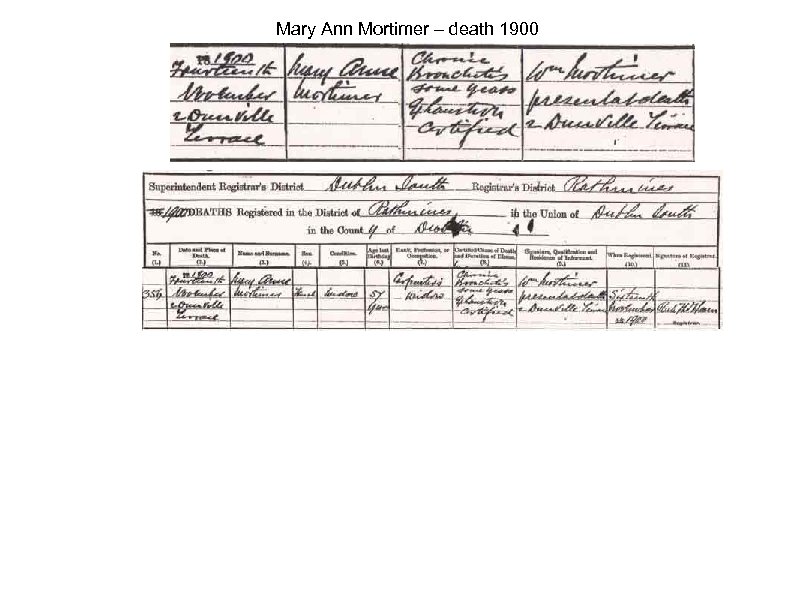 Mary Ann Mortimer – death 1900
1900
Fourteenth
November
2 Dunville
Terrace
Mary Anne
Mortimer
Chronic
Bronchitis
some years
Exhaustion
Certified
Wm Mortimer
present at death
2 Dunville Terrace
Superintendent Registrar's District Dublin South Registrar's District Rathmines
1900 DEATHS Registered in the District of Rathmines in the Union of Dublin South
in the County of Dublin
No. Date and Place of Death. Name and Surname. Sex. Condition. Age last Birthday. Rank, Profession, or Occupation. Certified Cause of Death and Duration of Illness. Signature, Qualification and Residence of Informant. When Registered. Signature of Registrar.
(1.) (2.) (3.) (4.) (5.) (6.) (7.) (8.) (9.) (10.) (11.)
1900
Fourteenth
November
2 Dunville
Terrace
Mary Anne
Mortimer
Widow
57
years
Carpenter's
widow
Chronic
Bronchitis
some years
Exhaustion
Certified
Wm Mortimer
present at death
2 Dunville Terrace
Sixteenth
November
1900
Registrar.